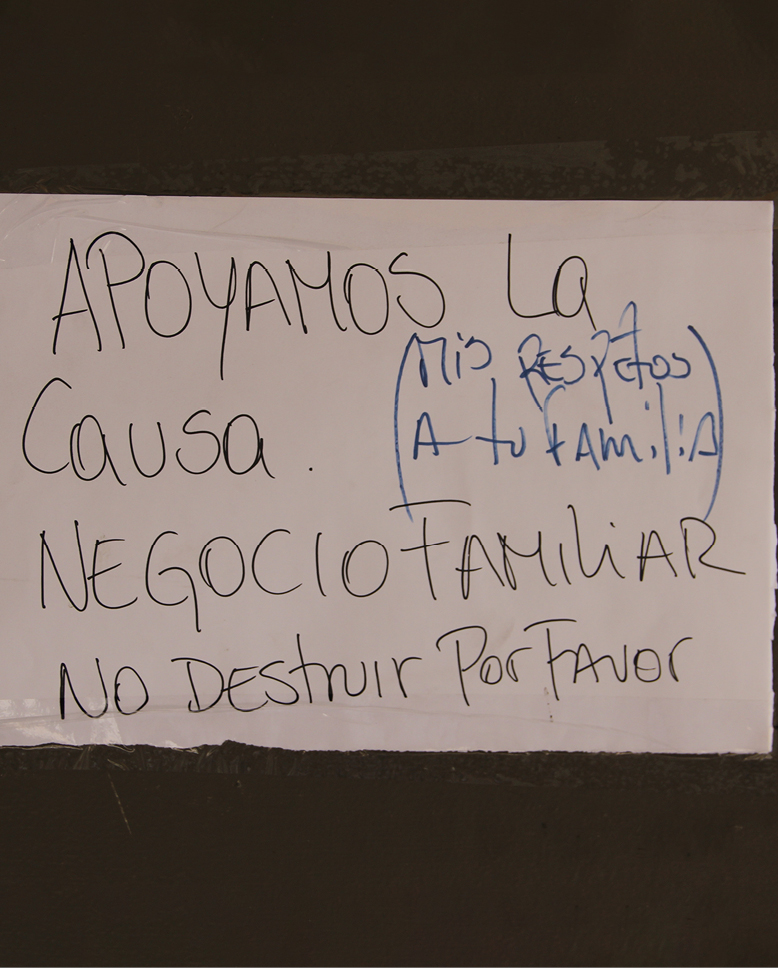 APOYAMOS La
Causa.
(Mis RESpEtos
A tu fAmiliA)
NEGOCIO FAMiliAR
NO DEStruir Por FAvor